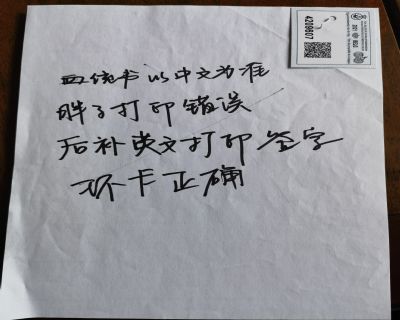 血统书以中文为准
胖子打印错误
后补英文打印签字
环卡正确
4209607